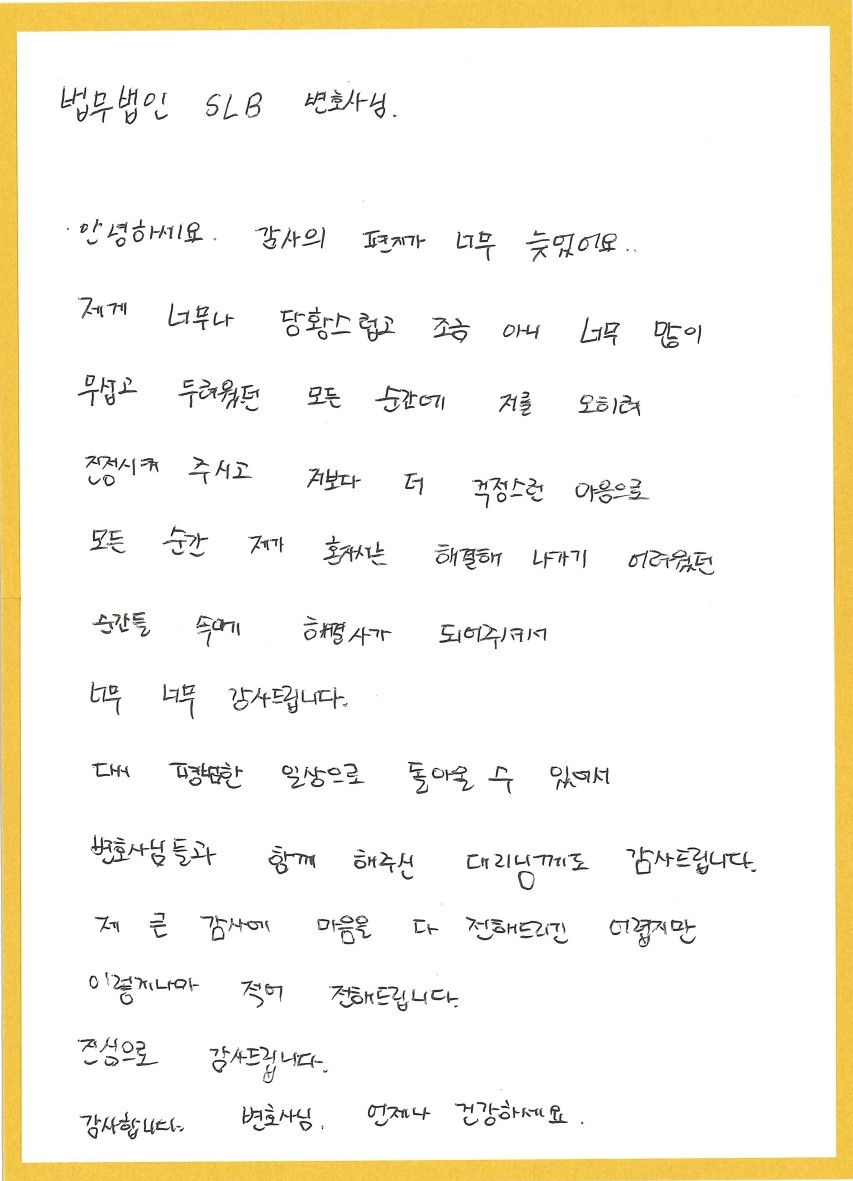 법무법인 SLB 변호사님.
안녕하세요. 감사의 편지가 너무 늦었어요..
제게 너무나 당황스럽고 조금 아니 너무 많이
무섭고 두려웠던 모든 순간에 저를 오히려
진정시켜 주시고 저보다 더 걱정스런 마음으로
모든 순간 제가 혼자서는 해결해 나가기 어려웠던
순간들 속에 해결사가 되어주셔서
너무 너무 감사드립니다.
평범한 일상으로 돌아올 수 있어서
변호사님들과 함께 해주신 대리님께도 감사드립니다.
제 큰 감사에 마음을 다 전해드리긴 어렵지만
이렇게나마 적어 전해드립니다.
진심으로 감사드립니다.
감사합니다. 변호사님. 언제나 건강하세요.